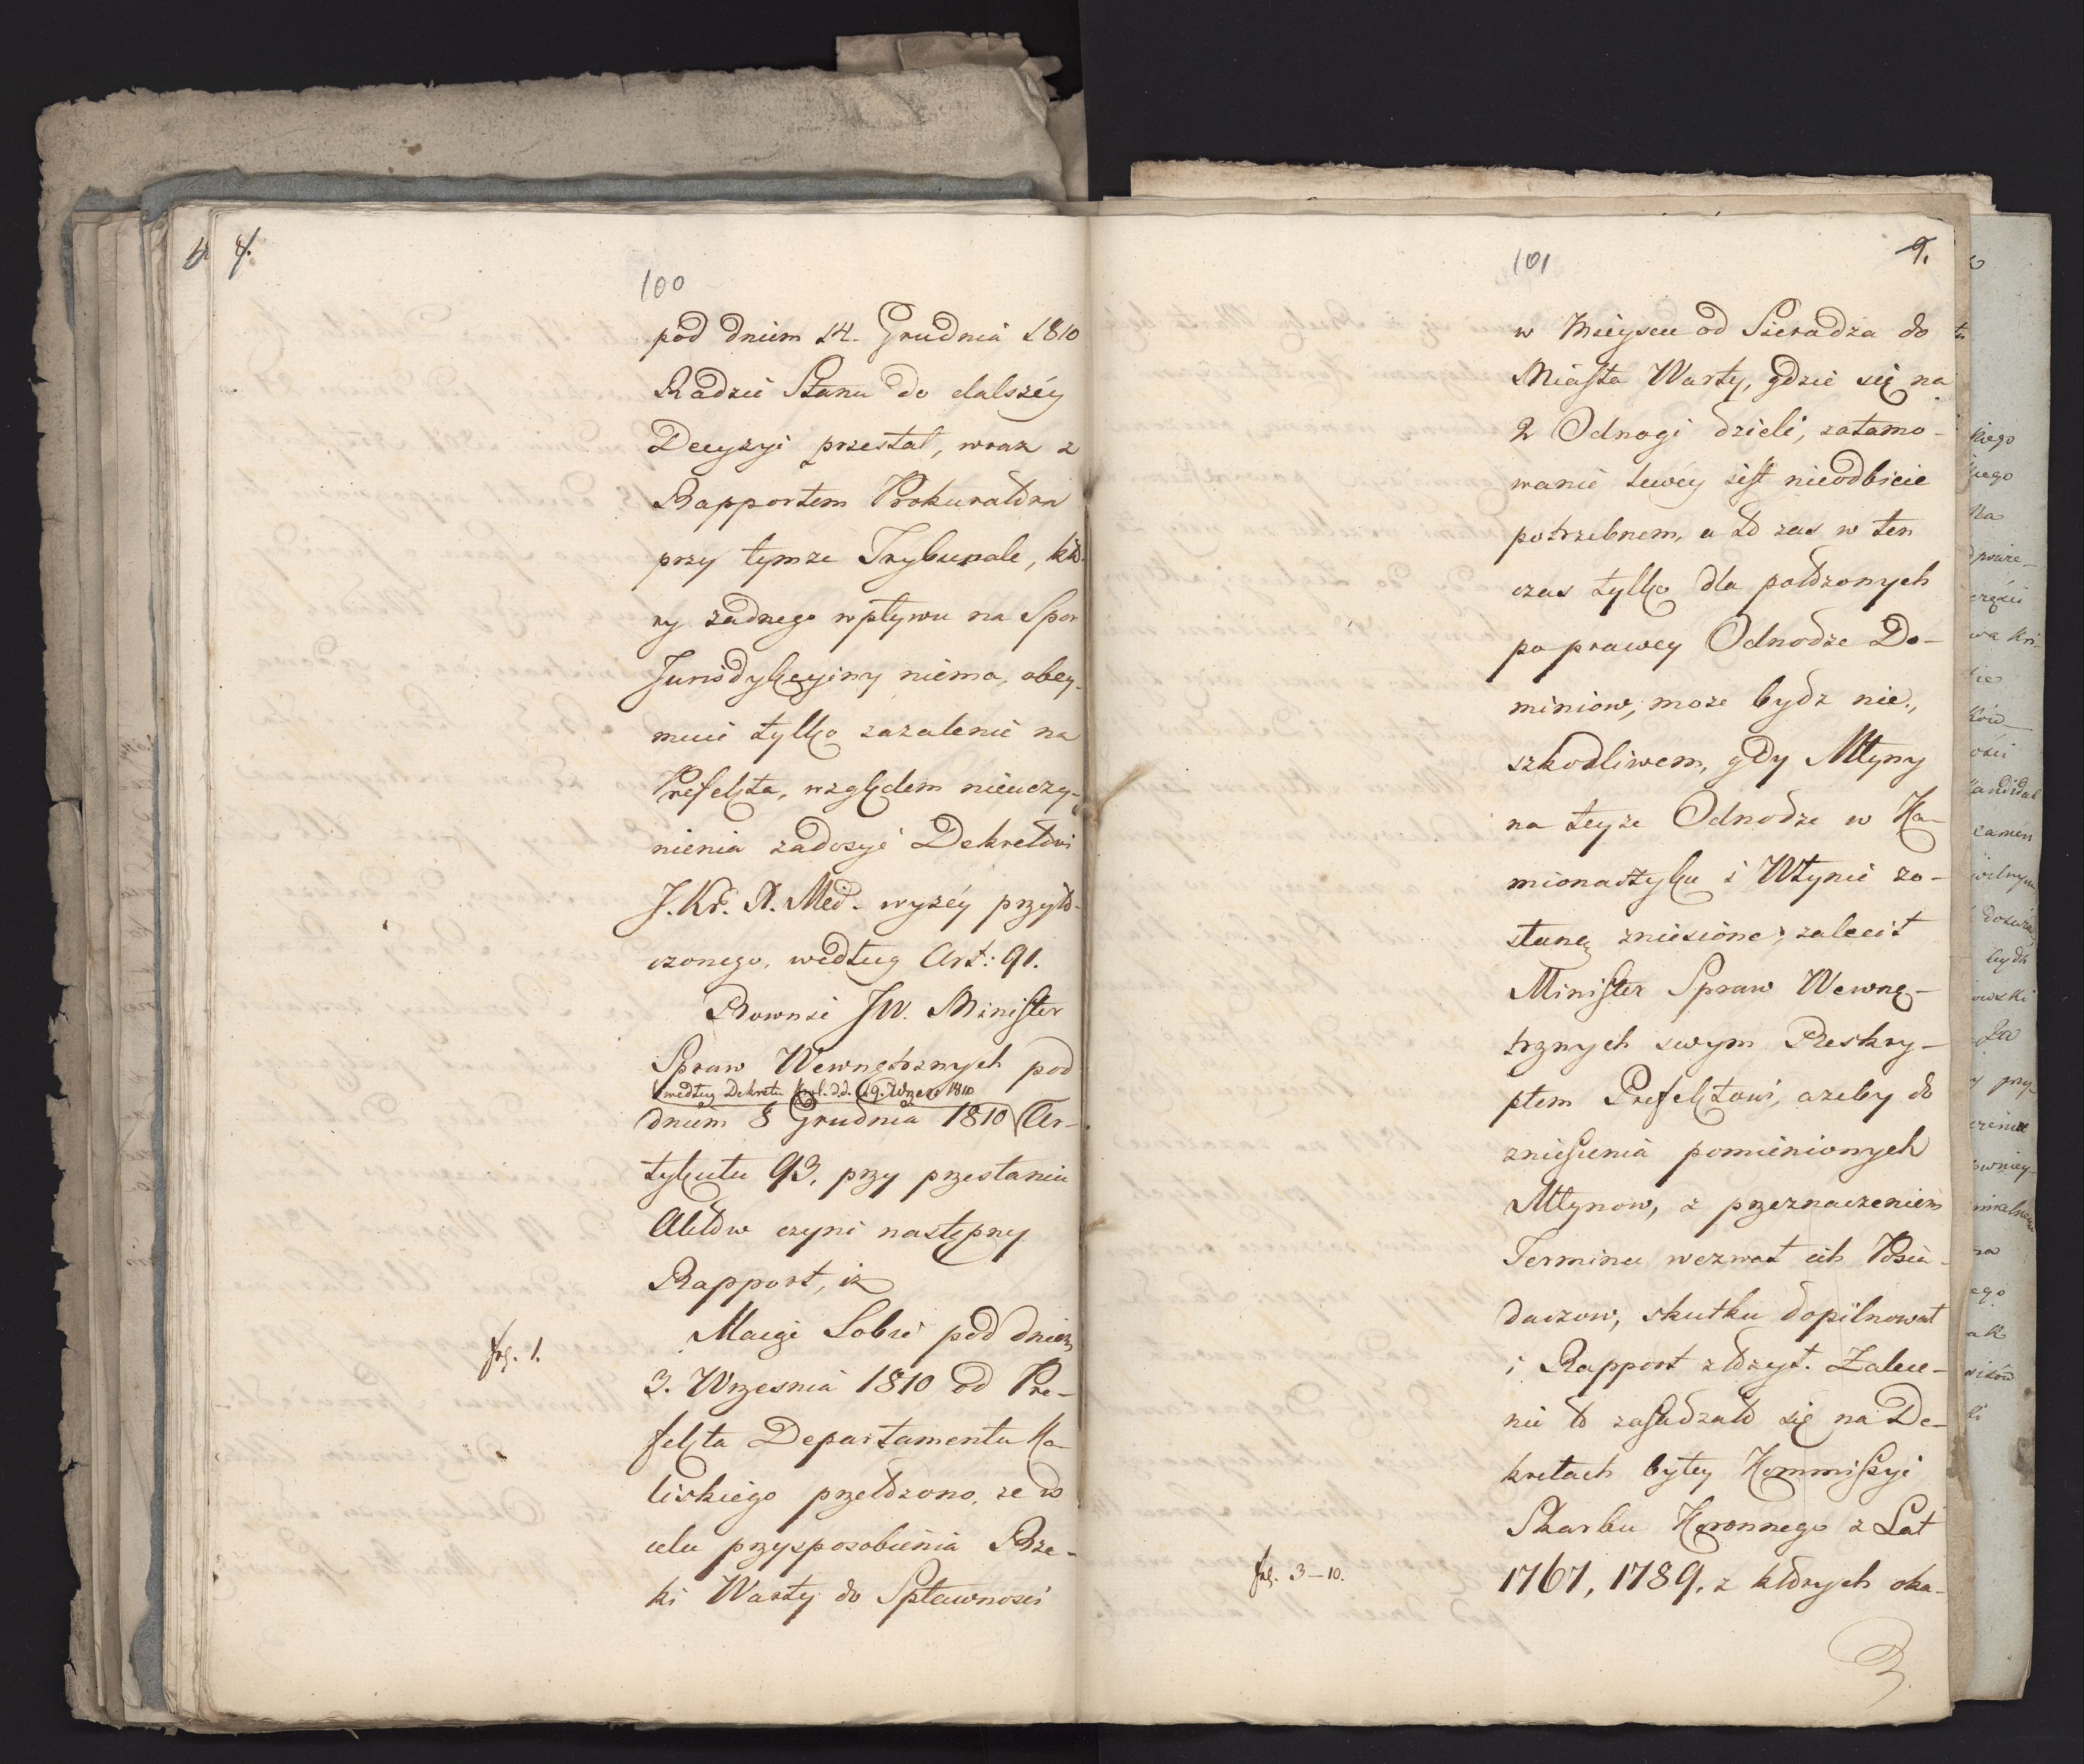 8.
100
pod dniem 14. Grudnia 1810
Radzie Stanu do dalszéy
Decyzyi przesłał, wraz z
Rapportem Prokuratora
przy tymże Trybunale, któ-
ry żadnego wpływu na Spor
Jurisdykcyiny niema, obey-
muie tylko zażalenie na
Prefekta, względem nieuczy-
nienia zadosyć Dekretowi
J. Kr. X. Med. wyżéy przyto-
czonego, według Art: 91.
Rownie JW. Minister
Spraw Wewnętrznych pod
według Dekretu Król. d.d. 19. Wrześ 1810
dniem 8 Grudnia 1810 Ar-
tykułu 93, przy przesłaniu
Aktów czyni następny
Rapport, iż
fol. 1.
Maiąc Sobie pod dniem
3. Wrzesnia 1810 od Pre-
fekta Departamentu Ka-
liskiego przełożono, że w
celu przysposobienia Rze-
ki Warty do Spławnosci
101
9.
w Mieyscu od Sieradza do
Miasta Warty, gdzie się na
2 Odnogi dzieli, zatamo-
wanie lewéy iest nieodbicie
potrzebnem, a to zas w ten
czas tylko dla położonych
po prawey Odnodze Do-
miniow, może bydz nie-
szkodliwem, gdy Młyny
na teyże Odnodze w Ka-
mionaczyku i Włynie zo-
staną zniesione, zalecił
Minister Spraw Wewnę-
trznych swym Reskry-
ptem Prefektowi, azeby do
zniesienia pomienionych
Młynow, z przeznaczeniem
Terminu wezwał ich Posia-
daczow, skutku dopilnował
i Rapport złożył. Zalece-
nie to zasadzało się na De-
kretach byłey Kommissyi
Skarbu Koronnego z Lat
fol. 3–10.
1767, 1789, z których oka-